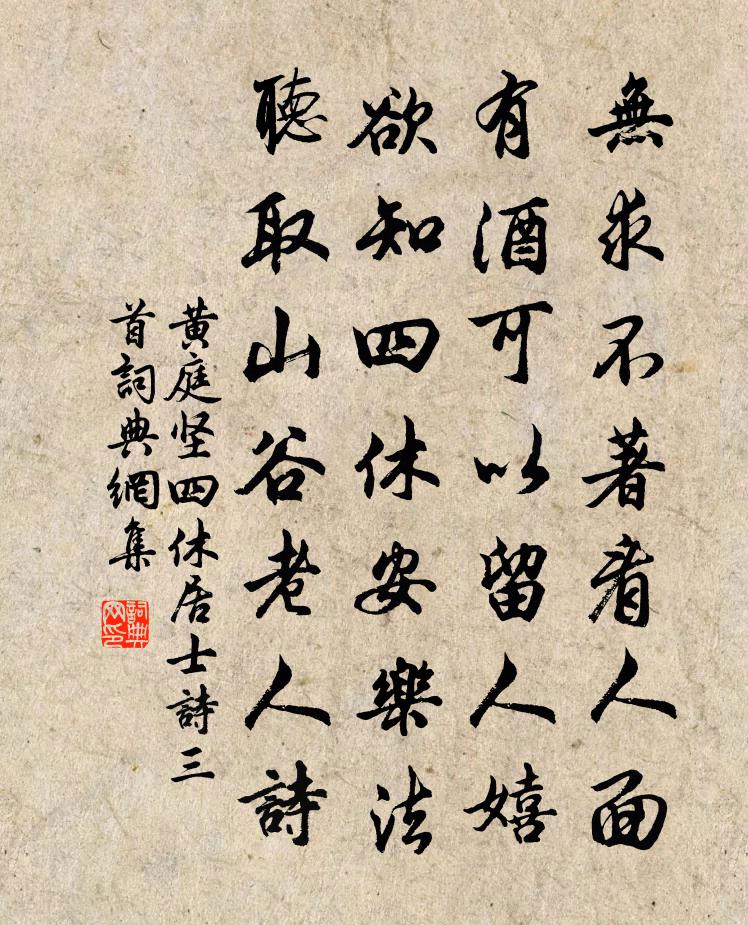 無求不著看人面
有酒可以留人嬉
欲知四休安樂法
聽取山谷老人詩
黄庭坚四休居士詩三
首詞典網集
詞典
网印